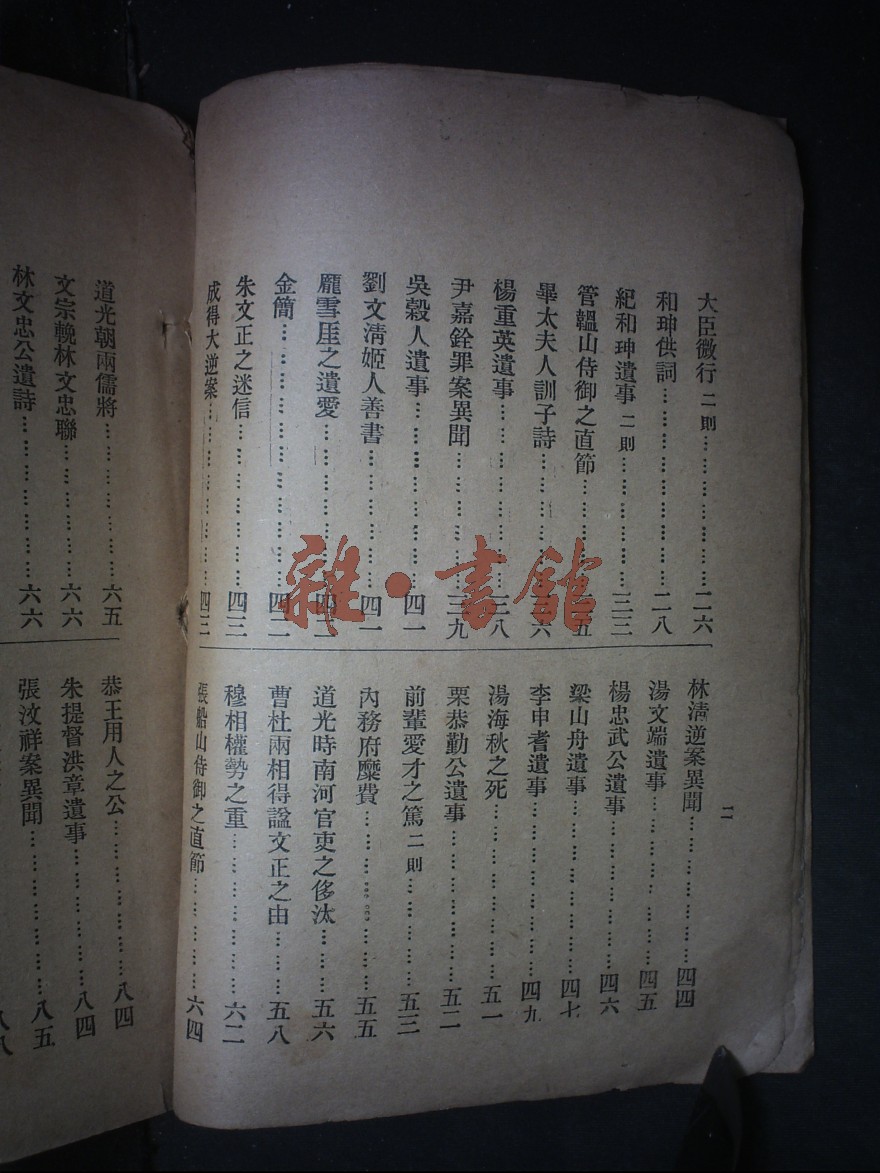 大臣微行 二則……………………二六
和珅供詞……………………二八
紀和珅遺事 二則……………………三三
管韞山侍御之直節……………………五
畢太夫人訓子詩……………………六
楊重英遺事……………………八
尹嘉銓罪案異聞……………………三九
吳穀人遺事……………………四一
劉文清姬人善書……………………四一
龐雪厓之遺愛……………………四二
金簡……………………四二
朱文正之迷信……………………四三
成得大逆案……………………四三
林清逆案異聞……………………四四
湯文端遺事……………………四五
楊忠武公遺事……………………四六
梁山舟遺事……………………四七
李申耆遺事……………………四九
湯海秋之死……………………五一
栗恭勤公遺事……………………五二
前輩愛才之篤 二則……………………五三
內務府糜費……………………五五
道光時南河官吏之侈汰……………………五六
曹杜兩相得諡文正之由……………………五八
穆相權勢之重……………………六二
張船山侍御之直節……………………六四
二
道光朝兩儒將……………………六五
文宗輓林文忠聯……………………六六
林文忠公遺詩……………………六六
恭王用人之公……………………八四
朱提督洪章遺事……………………八四
張汶祥案異聞……………………八五
八八
雜·書館